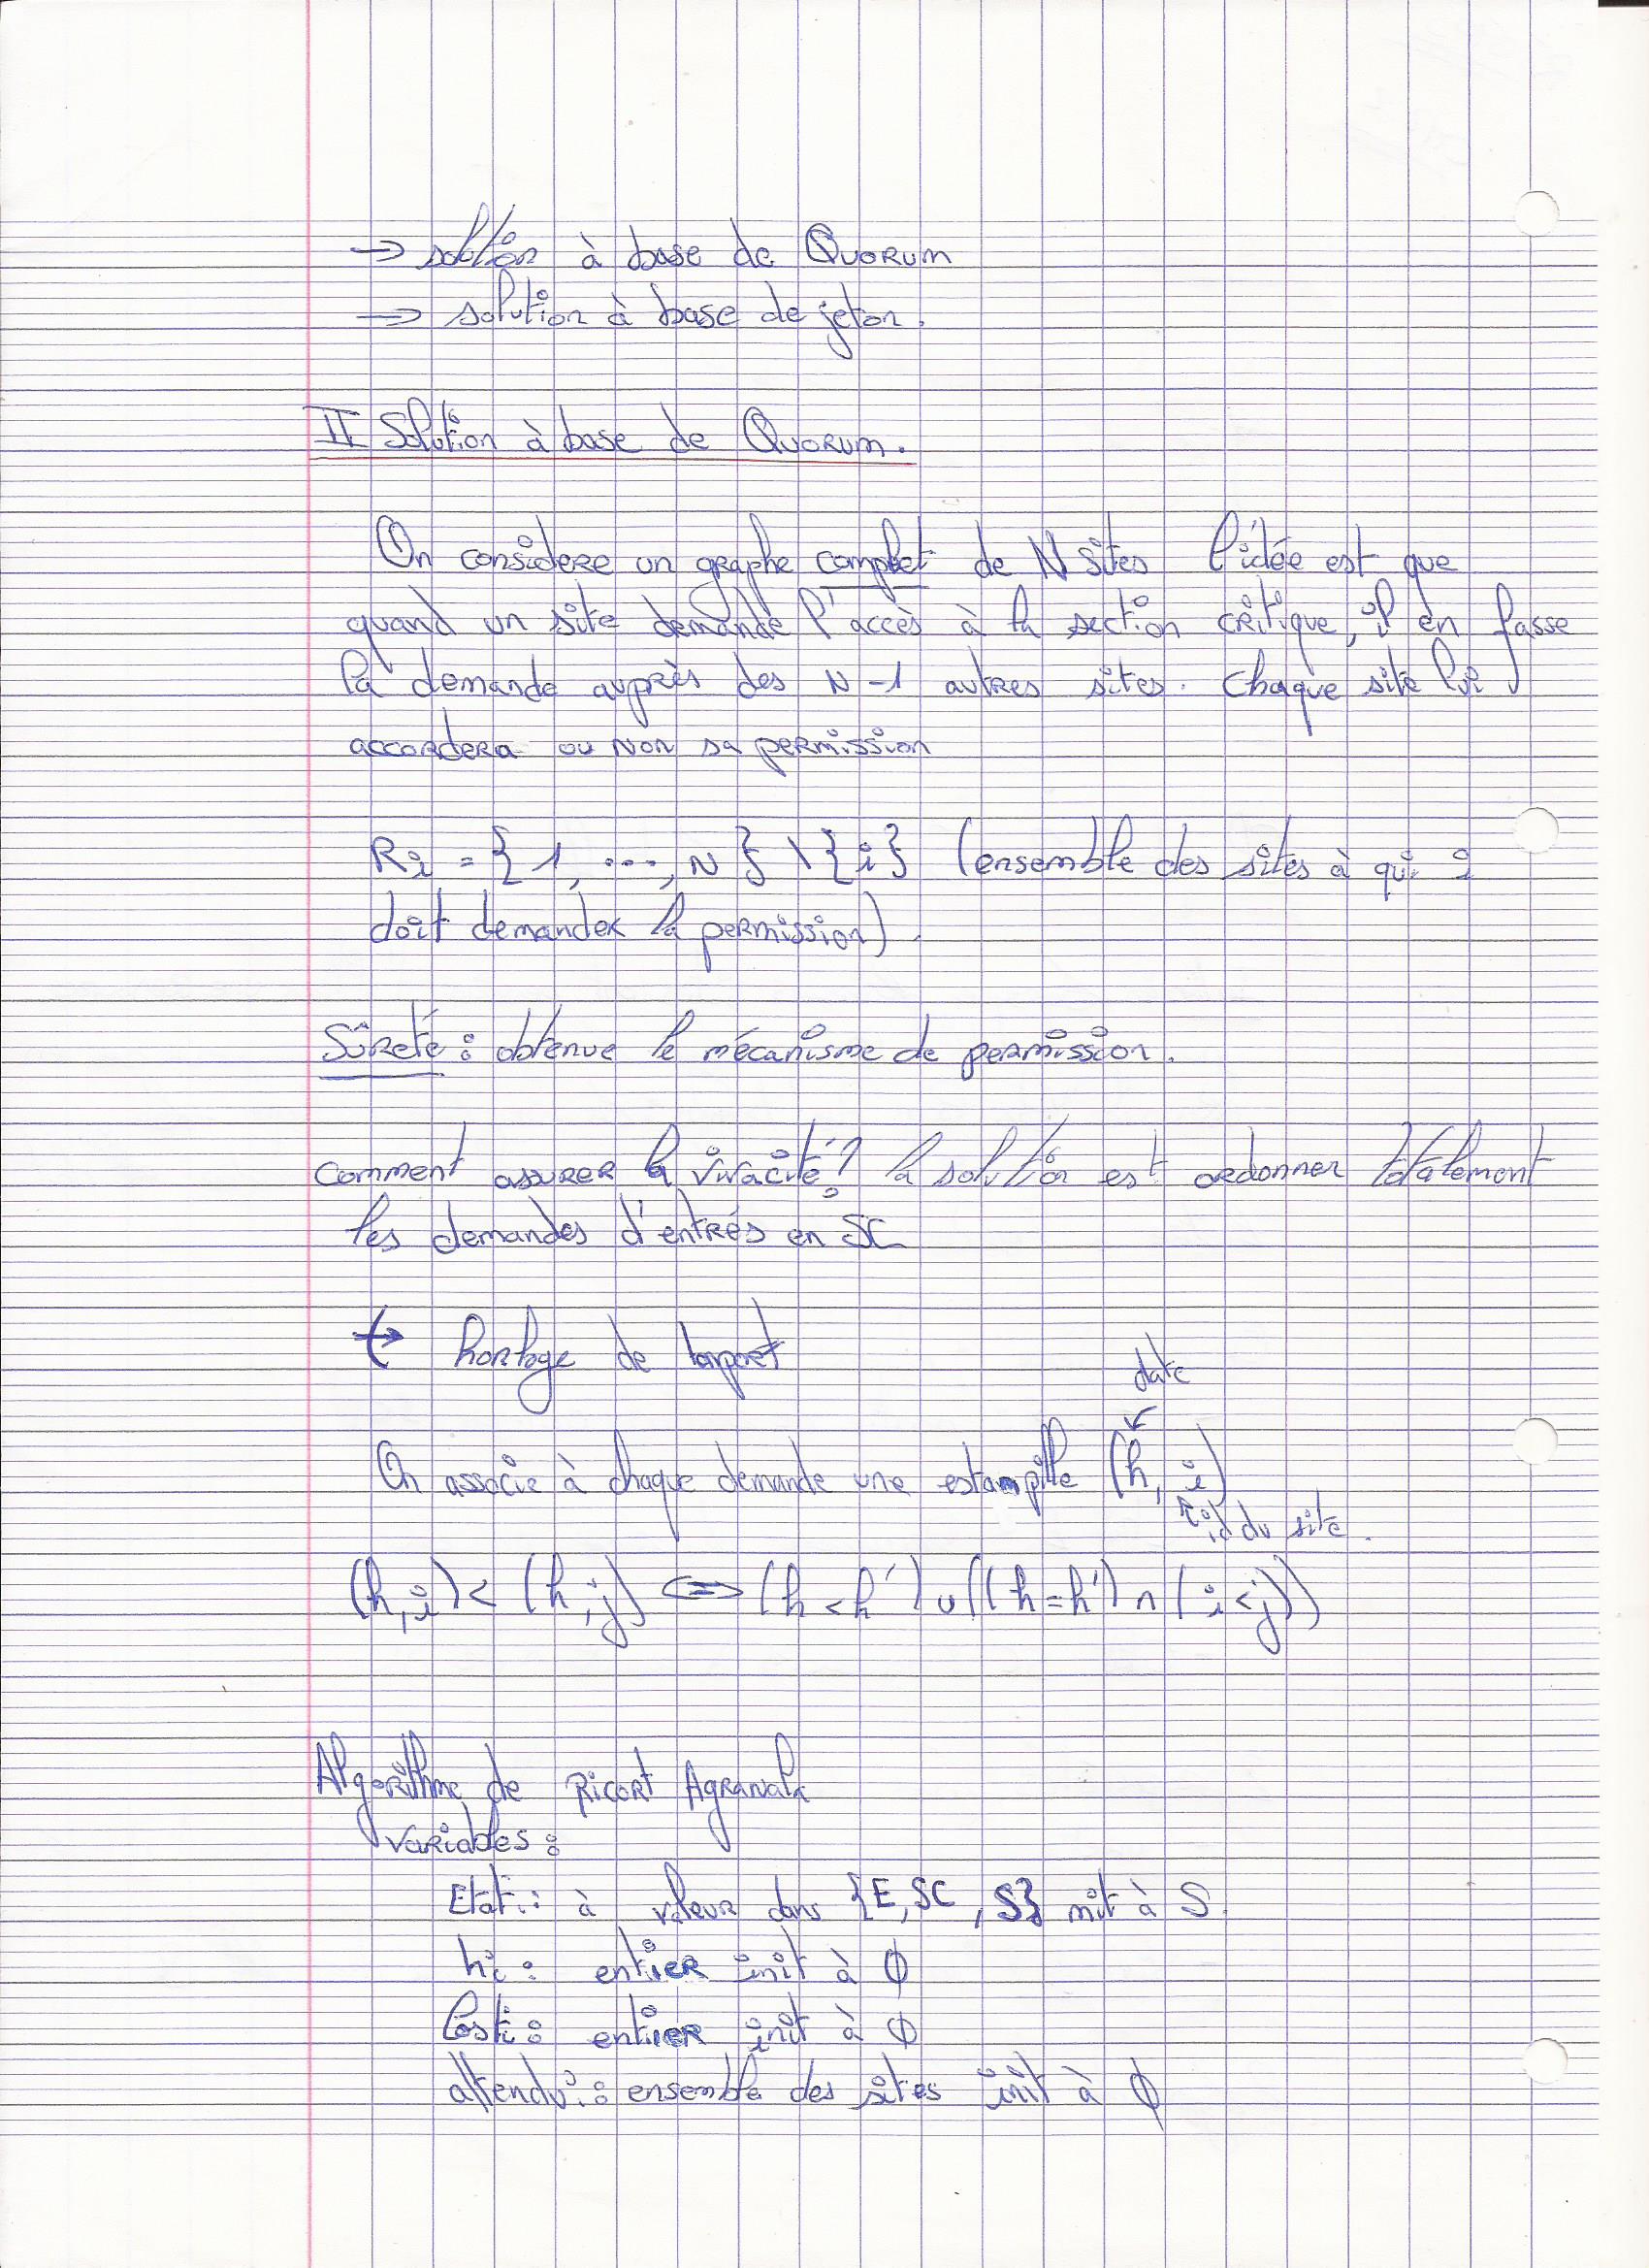 → solution à base de Quorum
→ solution à base de jeton.
II Solution à base de Quorum.
On considere un graphe complet de N sites l'idée est que
quand un site demande l'accès à la section critique, il en fasse
la demande auprès des N-1 autres sites. Chaque site lui
accordera ou non sa permission
Ri = {1, ..., N} \ {i} (ensemble des sites à qui i
doit demander la permission).
Sûreté : obtenue le mécanisme de permission.
Comment assurer la vivacité? la solution est ordonner totalement
les demandes d'entrés en SC
↪ horloge de lamport
date
On associe à chaque demande une estampille (h, i)
id du site.
(h,i) < (h,j) <=> (h < h') ∪ ((h = h') ∩ (i < j))
Algorithme de Ricort Agrawala
Variables :
Etati : à valeur dans {E, SC, S} init à S.
hi : entier init à 0
lasti : entier init à 0
attendui : ensemble des sites init à ∅